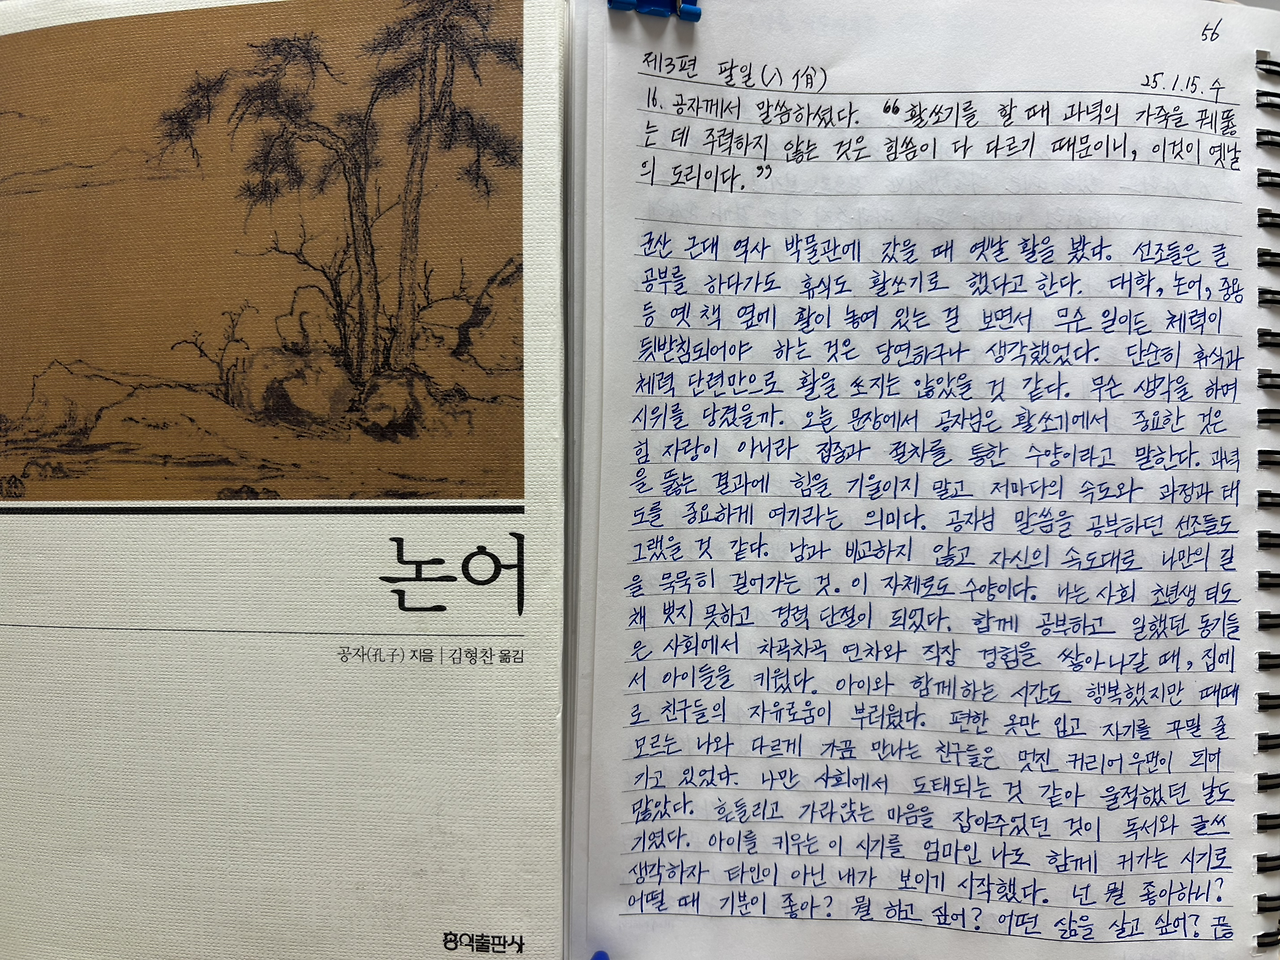 논어
공자(孔子) 지음 | 김형찬 옮김
홍익출판사
56
제3편 팔일(八佾)
25.1.15.수
16. 공자께서 말씀하셨다. "활쏘기를 할 때 과녁의 가죽을 꿰뚫
는 데 주력하지 않는 것은 힘씀이 다 다르기 때문이니, 이것이 옛날
의 도리이다."
군산 근대 역사 박물관에 갔을 때 옛날 활을 봤다. 선조들은 글
공부를 하다가도 휴식도 활쏘기로 했다고 한다. 대학, 논어, 중용
등 옛 책 옆에 활이 놓여 있는 걸 보면서 무슨 일이든 체력이
뒷받침되어야 하는 것은 당연하구나 생각했었다. 단순히 휴식과
체력 단련만으로 활을 쏘지는 않았을 것 같다. 무슨 생각을 하며
시위를 당겼을까. 오늘 문장에서 공자님은 활쏘기에서 중요한 것은
힘 자랑이 아니라 집중과 절차를 통한 수양이라고 말한다. 과녁
을 뚫는 결과에 힘을 기울이지 말고 저마다의 속도와 과정과 태
도를 중요하게 여기라는 의미다. 공자님 말씀을 공부하던 선조들도
그랬을 것 같다. 남과 비교하지 않고 자신의 속도대로 나만의 길
을 묵묵히 걸어가는 것. 이 자체로도 수양이다. 나는 사회 초년생 티도
채 벗지 못하고 경력 단절이 되었다. 함께 공부하고 일했던 동기들
은 사회에서 차곡차곡 연차와 직장 경험을 쌓아나갈 때, 집에
서 아이들을 키웠다. 아이와 함께하는 시간도 행복했지만 때때
로 친구들의 자유로움이 부러웠다. 편한 옷만 입고 자기를 꾸밀 줄
모르는 나와 다르게 가끔 만나는 친구들은 멋진 커리어우먼이 되어
가고 있었다. 나만 사회에서 도태되는 것 같아 울적했던 날도
많았다. 흔들리고 가라앉는 마음을 잡아주었던 것이 독서와 글쓰
기였다. 아이를 키우는 이 시기를 엄마인 나도 함께 커가는 시기로
생각하자 타인이 아닌 내가 보이기 시작했다. 넌 뭘 좋아하니?
어떨 때 기분이 좋아? 뭘 하고 싶어? 어떤 삶을 살고 싶어? 끊